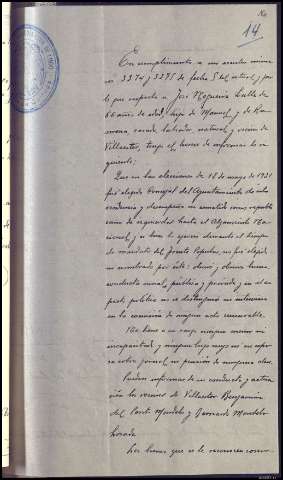 14
En cumplimiento a sus escritos núme-
ros 3374 y 3375 de fecha 5 del actual, y por
lo que respecta a José Nogueira Lalla de
66 años de edad, hijo de Manuel y de Ra-
mona, casado, labrador, natural y vecino de
Villaester, tengo el honor de informar lo si-
guiente:
Que en las elecciones de 16 de mayo de 1931
fué elegido Concejal del Ayuntamiento de esta
y desempeñó su cometido como republi-
cano de izquierdas hasta el Alzamiento Na-
cional, y si bien lo ejerció durante el tiempo
de mandato del Frente Popular, no fué elegido
ni nombrado por éste: observó y observa buena
conducta moral, pública y privada, y en el as-
pecto político no se distinguió ni intervino
en la comisión de ningún acto censurable.
No tiene a su cargo ningún menor ni
incapacitado, y ningún hijo suyo ni su es-
posa cobra jornal, ni pensión de ninguna clase.
Pueden informar de su conducta y actua-
ción los vecinos de Villaester Benjamín
del
Losada
Los bienes que se le reconocen como